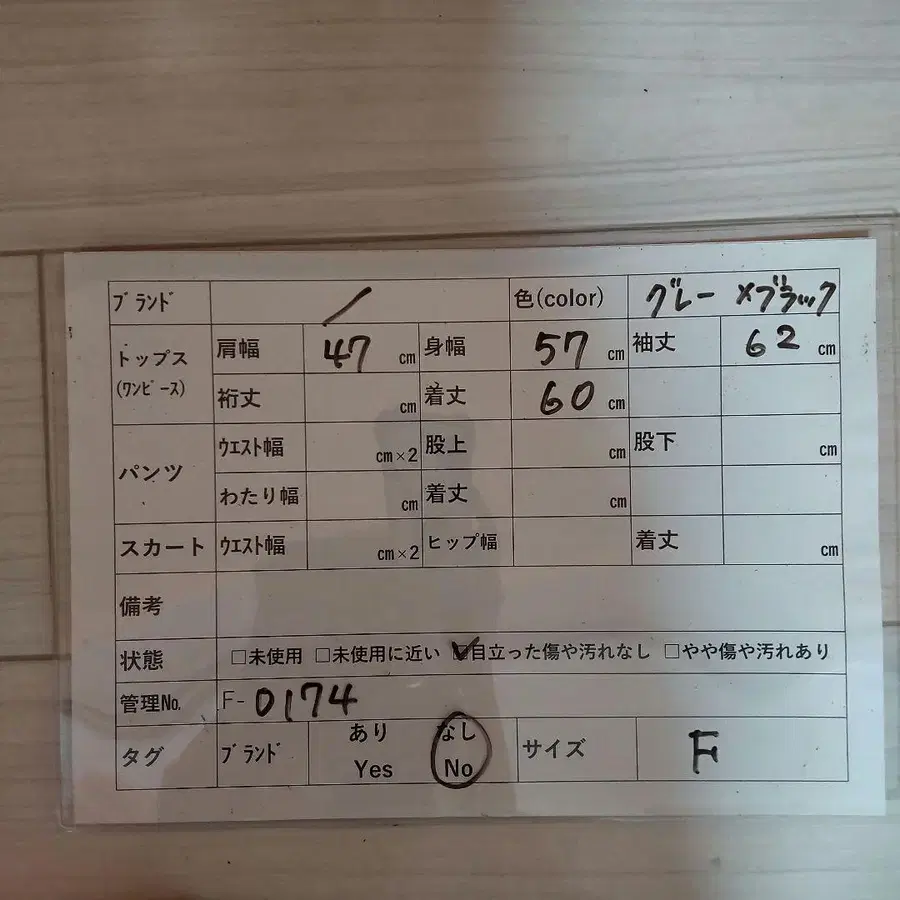 ブランド / 色(color) グレー ×ブラック
トップス (ワンピース) 肩幅 47 cm 身幅 57 cm 袖丈 62 cm
裄丈 cm 着丈 60 cm
パンツ ウエスト幅 cm×2 股上 cm 股下 cm
わたり幅 cm 着丈 cm
スカート ウエスト幅 cm×2 ヒップ幅 着丈 cm
備考
状態 □未使用 □未使用に近い ☑目立った傷や汚れなし □やや傷や汚れあり
管理No. F-0174
タグ ブランド あり Yes なし No サイズ F